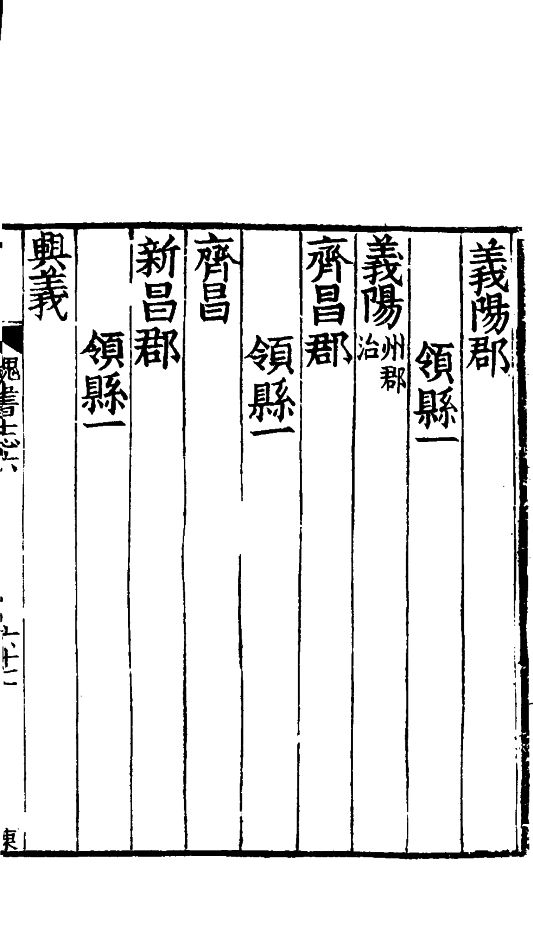 義陽郡
領縣一
義陽州郡治
齊昌郡
領縣一
齊昌
新昌郡
領縣一
興義
魏書志六
六十二
東